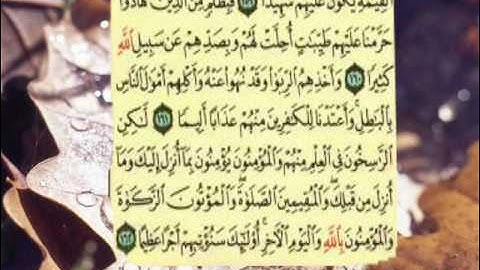 ٱلْقِيَـٰمَةِ يَكُونُ عَلَيْهِمْ شَهِيدًا ١٥٩ فَبِظُلْمٍ مِّنَ ٱلَّذِينَ هَادُوا۟
حَرَّمْنَا عَلَيْهِمْ طَيِّبَـٰتٍ أُحِلَّتْ لَهُمْ وَبِصَدِّهِمْ عَن سَبِيلِ ٱللَّهِ
كَثِيرًا ١٦٠ وَأَخْذِهِمُ ٱلرِّبَوٰا۟ وَقَدْ نُهُوا۟ عَنْهُ وَأَكْلِهِمْ أَمْوَٰلَ ٱلنَّاسِ
بِٱلْبَـٰطِلِ ۚ وَأَعْتَدْنَا لِلْكَـٰفِرِينَ مِنْهُمْ عَذَابًا أَلِيمًا ١٦١ لَّـٰكِنِ
ٱلرَّٰسِخُونَ فِى ٱلْعِلْمِ مِنْهُمْ وَٱلْمُؤْمِنُونَ يُؤْمِنُونَ بِمَآ أُنزِلَ إِلَيْكَ وَمَآ
أُنزِلَ مِن قَبْلِكَ ۚ وَٱلْمُقِيمِينَ ٱلصَّلَوٰةَ ۚ وَٱلْمُؤْتُونَ ٱلزَّكَوٰةَ
وَٱلْمُؤْمِنُونَ بِٱللَّهِ وَٱلْيَوْمِ ٱلْـَٔاخِرِ أُو۟لَـٰٓئِكَ سَنُؤْتِيهِمْ أَجْرًا عَظِيمًا ١٦٢